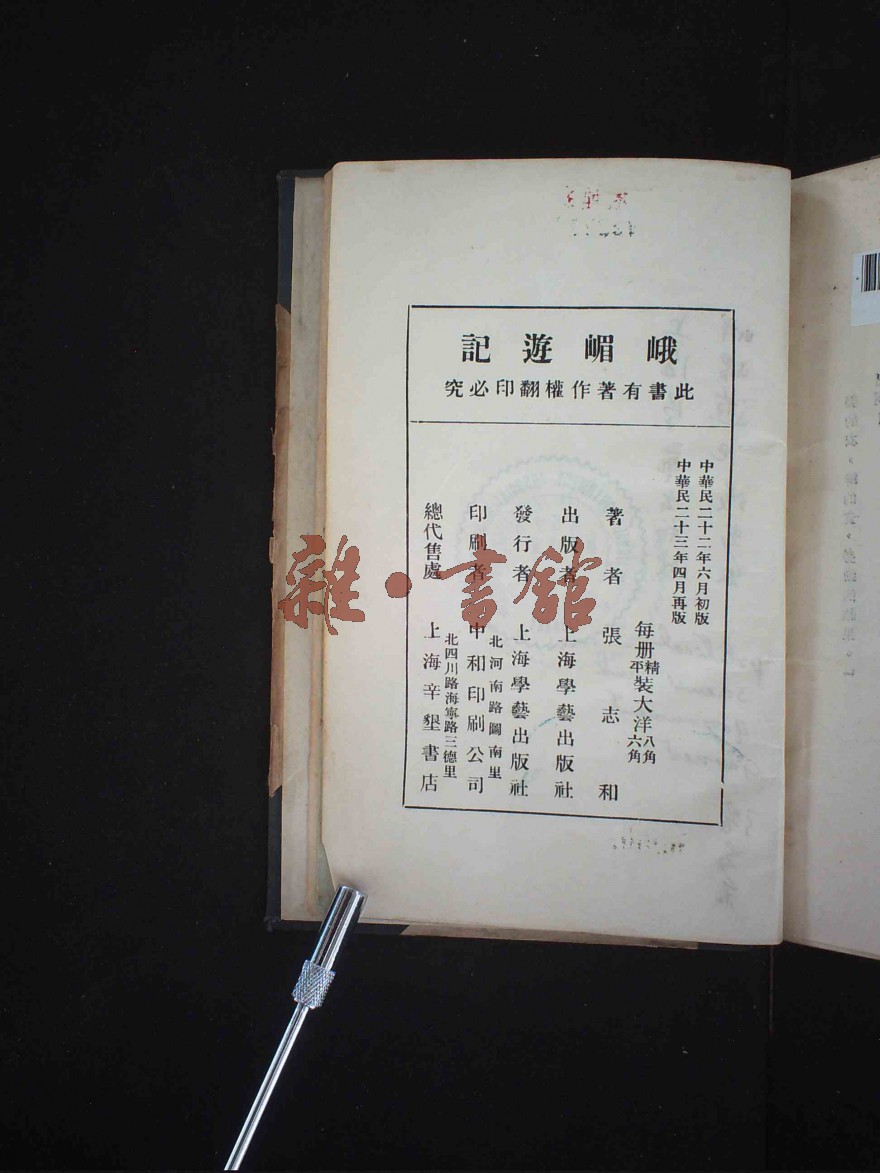 峨嵋遊記
此書有著作權翻印必究
中華民二十二年六月初版
中華民二十三年四月再版
每册精平裝大洋八角六角
著者 張志和
出版者 上海學藝出版社
發行者 上海學藝出版社
北河南路圖南里
印刷者 中和印刷公司
北四川路海寧路三德里
總代售處 上海辛墾書店
雜·書館